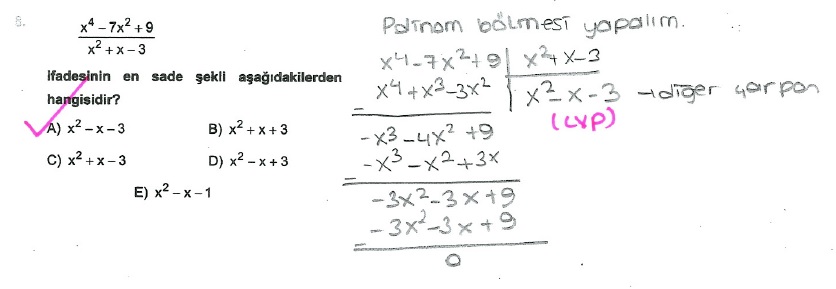 8.
x⁴ – 7x² + 9
x² + x – 3
ifadesinin en sade şekli aşağıdakilerden
hangisidir?
A) x² – x – 3
B) x² + x + 3
C) x² + x – 3
D) x² – x + 3
E) x² – x – 1
Polinom bölmesi yapalım.
x⁴ – 7x² + 9 | x² + x – 3
x⁴ + x³ – 3x² | x² – x – 3 → diğer çarpan
–
(cvp)
–x³ – 4x² + 9
–x³ – x² + 3x
–
–3x² – 3x + 9
–3x² – 3x + 9
–
0